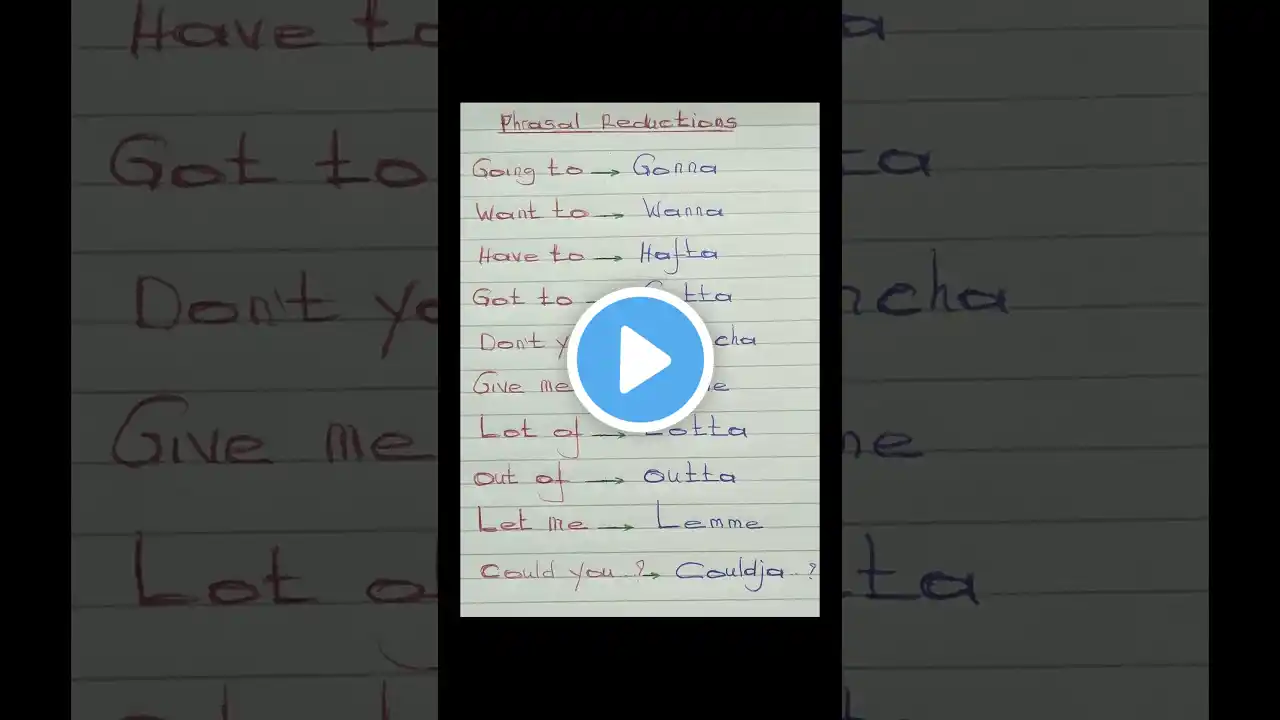 Phrasal Reductions
Going to → Gonna
Want to → Wanna
Have to → Hafta
Got to
Don't
Give me
Lot of → Lotta
out of → outta
Let me → Lemme
Could you ? → Couldja ?